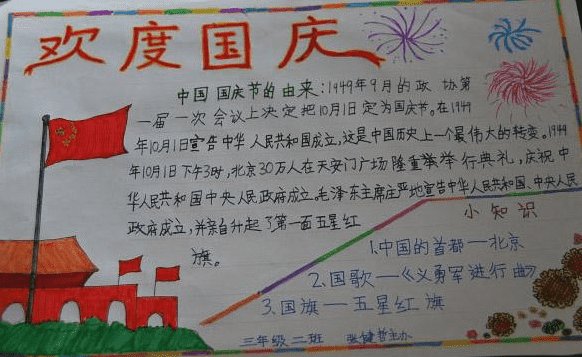 欢度国庆
中国国庆节的由来:1949年9月的政协第
一届一次会议上决定把10月1日定为国庆节。在1949
年10月1日宣告中华人民共和国成立,这是中国历史上一个最伟大的转变。1949
年10月1日下午3时,北京30万人在天安门广场隆重举举行典礼,庆祝中
华人民共和国中央人民政府成立,毛泽东主席庄严地宣告中华人民共和国、中央人民
政府成立,并亲自升起了第一面五星红
旗。
小知识
1.中国的首都—北京
2.国歌—《义勇军进行曲》
3.国旗—五星红旗
三年级二班 张健哲主办